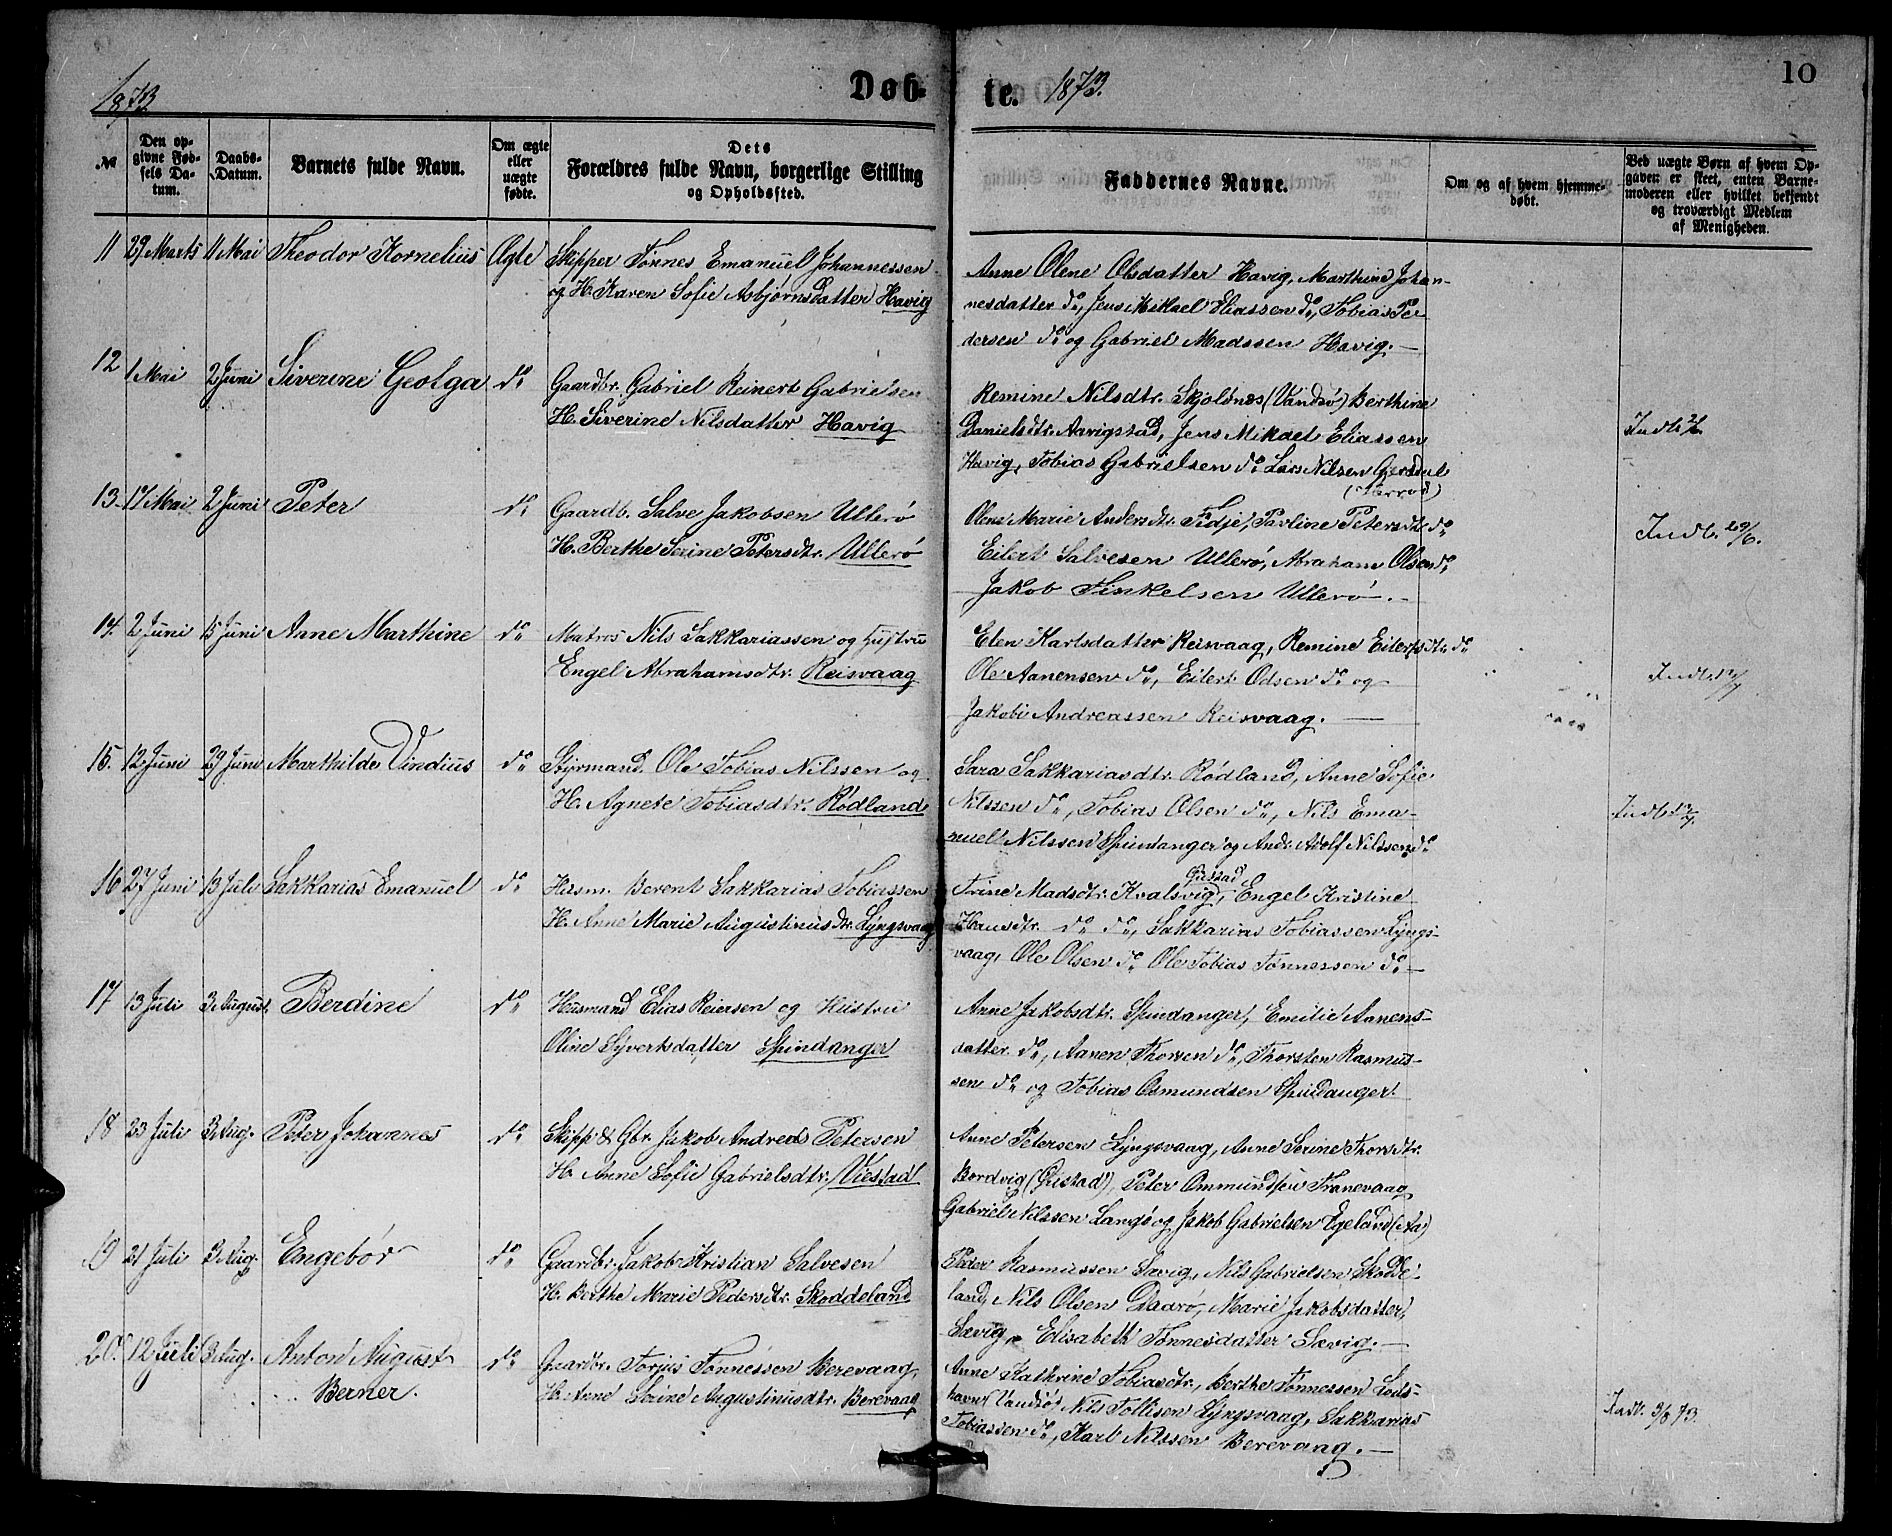 1873
Døb-
te.
1873.
10
№
Den op-
givne Fød-
sels Da-
tum.
Daabs-
Datum.
Barnets fulde Navn.
Om ægte
eller
uægte
fødte.
Dets
Forældres fulde Navn, borgerlige Stilling
og Opholdssted.
Faddernes Navne.
Om og af hvem hjemme-
døbt.
Ved uægte Børn af hvem Op-
gaven er skeet, enten Barne-
moderen eller hvilket bekjendt
og troværdigt Medlem
af Menigheden.
11 29 Marts 11 Mai Theodor Kornelius Ægte Skipper Tønnes Emanuel Johannessen
og H. Karen Sofie Asbjørnsdatter Havig
Anne Olene Olsdatter Havig, Marthine Johan-
nesdatter do, Jens Mikael Eliassen do, Tobias Pe-
dersen do og Gabriel Madssen Havig. —
12 1 Mai 2 Juni Siverine Geolga do Gaardbr. Gabriel Reinert Gabrielsen
H. Siverine Nilsdatter Havig
Remine Nilsdtr. Skjolsnes (Vandsø) Berthine
Danielsdtr. Aavigstad, Jens Mikael Eliassen
Havig, Tobias Gabrielsen do Lars Nilsen Gersdal
(Herred)
Indb.
13. 17 Mai 2 Juni Peter do Gaardb. Salve Jakobsen Ullerø
H. Berthe Serine Petersdtr. Ullerø
Olene Marie Andersdtr. Fidje, Pauline Petersdtr. do
Eilert Salvesen Ullerø, Abraham Olsen do
Jakob Finkelsen Ullerø. —
Indb. 29/6.
14. 2 Juni 15 Juni Anne Marthine do Matros Nils Sakkariassen og Hustru
Engel Abrahamsdtr. Reisvaag
Elen Karlsdatter Reisvaag, Remine Eilertsdtr. do
Ole Aanensen do, Eilert Odsen do og
Jakobi Andreassen Reisvaag. —
Indb. 13/7
15. 12 Juni 29 Juni Marthilde Vindius do Styrmand. Ole Tobias Nilssen og
H. Agnete Tobiasdtr. Rødland
Sara Sakkariasdtr. Rødland, Anne Sofie
Nilssen do, Tobias Olsen do, Nils Ema-
nuel Nilssen Spindanger og Andr. Adolf Nilssen do
Indb. 13/7.
16 27 Juni 13 Juli Sakkarias Emanuel do Husm. Berent Sakkarias Tobiassen
H. Anne Marie Augustinusdtr. Lyngsvaag
Gustad
Trine Madsdtr. Kvalsvig, Engel Kristine
Hansdtr. do do, Sakkarias Tobiassen Lyngs-
vaag, Ole Olsen do Ole Tobias Tønnessen do —
17 13 Juli 3 August Berdine do Husmand Elias Reiersen og Hustru
Oline Syvertsdatter Spindanger
Anne Jakobsdtr. Spindanger, Emilie Aanens-
datter do, Aanen Thorsen do, Thorsten Rasmus-
sen do og Tobias Osmundsen Spindanger.
18 23 Juli 3 Aug. Peter Johannes do Skipp & Gbr. Jakob Andreas Petersen
H. Anne Sofie Gabrielsdtr. Viestad
Anne Petersen Lyngsvaag, Anne Serine Thorsdtr.
Bordvig (Østad), Peter Ommundsen Tranevaag
Gabriel Nilssen Langø og Jakob Gabrielsen Egeland (Aa)
19 21 Juli 3 Aug. Engebør do Gaardbr. Jakob Kristian Salvesen
H. Berthe Marie Pedersdtr. Skoddeland
Peder Rasmussen Sævig, Nils Gabrielsen Skodde-
land, Nils Olsen Daarø, Marie Jakobsdatter,
Sævig, Elisabeth Tønnesdatter Sævig. —
20. 12 Juli 3 Aug. Anton August do Gaardbr. Torjus Tønnessen Berevaag,
Berner. H. Anne Serine Augustinusdtr. Berevaag
Anne Kathrine Tobiasdtr., Berthe Tønnessen Lods-
havn (Vandsø) Nils Tollisen Lyngsvaag, Sakkarias
Tobiassen do, Karl Nilssen Berevaag. —
Indb. 3/8 73.